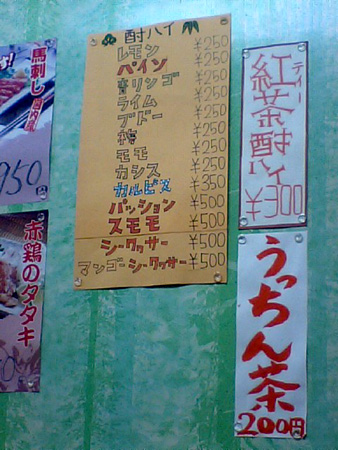 馬刺し
950円
赤鶏のタタキ
酎ハイ
レモン ¥250
パイン ¥250
青リンゴ ¥250
ライム ¥250
ブドー ¥250
¥250
モモ ¥250
カシス ¥250
カルピス ¥350
パッション ¥500
スモモ ¥500
シークヮサー ¥500
マンゴーシークヮサー ¥500
ティー
紅茶酎ハイ
¥300
うっちん茶
200円